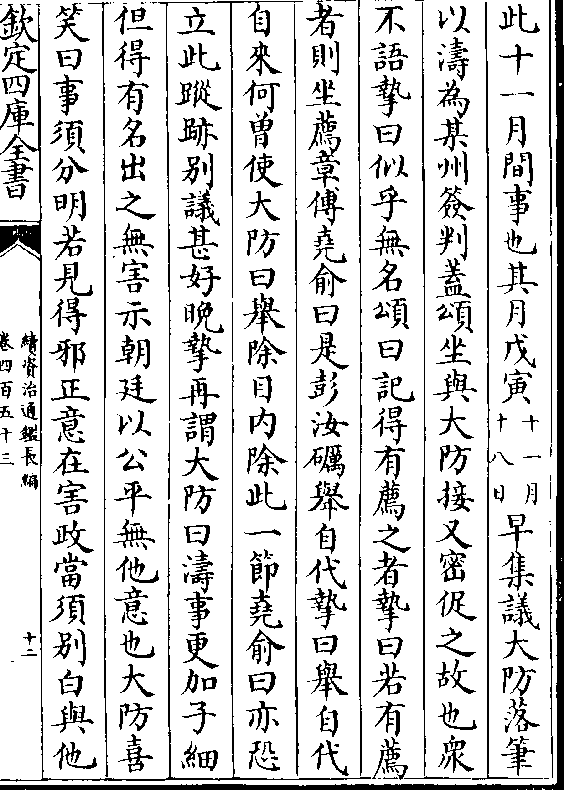 此十一月間事也其月戊寅十一月十八日早集議大防落筆
以濤為某州簽判蓋頌坐與大防接又密促之故也衆
不語摯曰似乎無名頌曰記得有薦之者摯曰若有薦
者則坐薦章傅堯俞曰是彭汝礪舉自代摯曰舉自代
自來何曽使大防曰舉除目内除此一節堯俞曰亦恐
立此蹤跡别議甚好晚摯再謂大防曰濤事更加子細
但得有名出之無害示朝廷以公平無他意也大防喜
笑曰事須分明若見得邪正意在害政當須别白與他
欽定四庫全書
續資治通鑑長編
卷四百五十三
十二